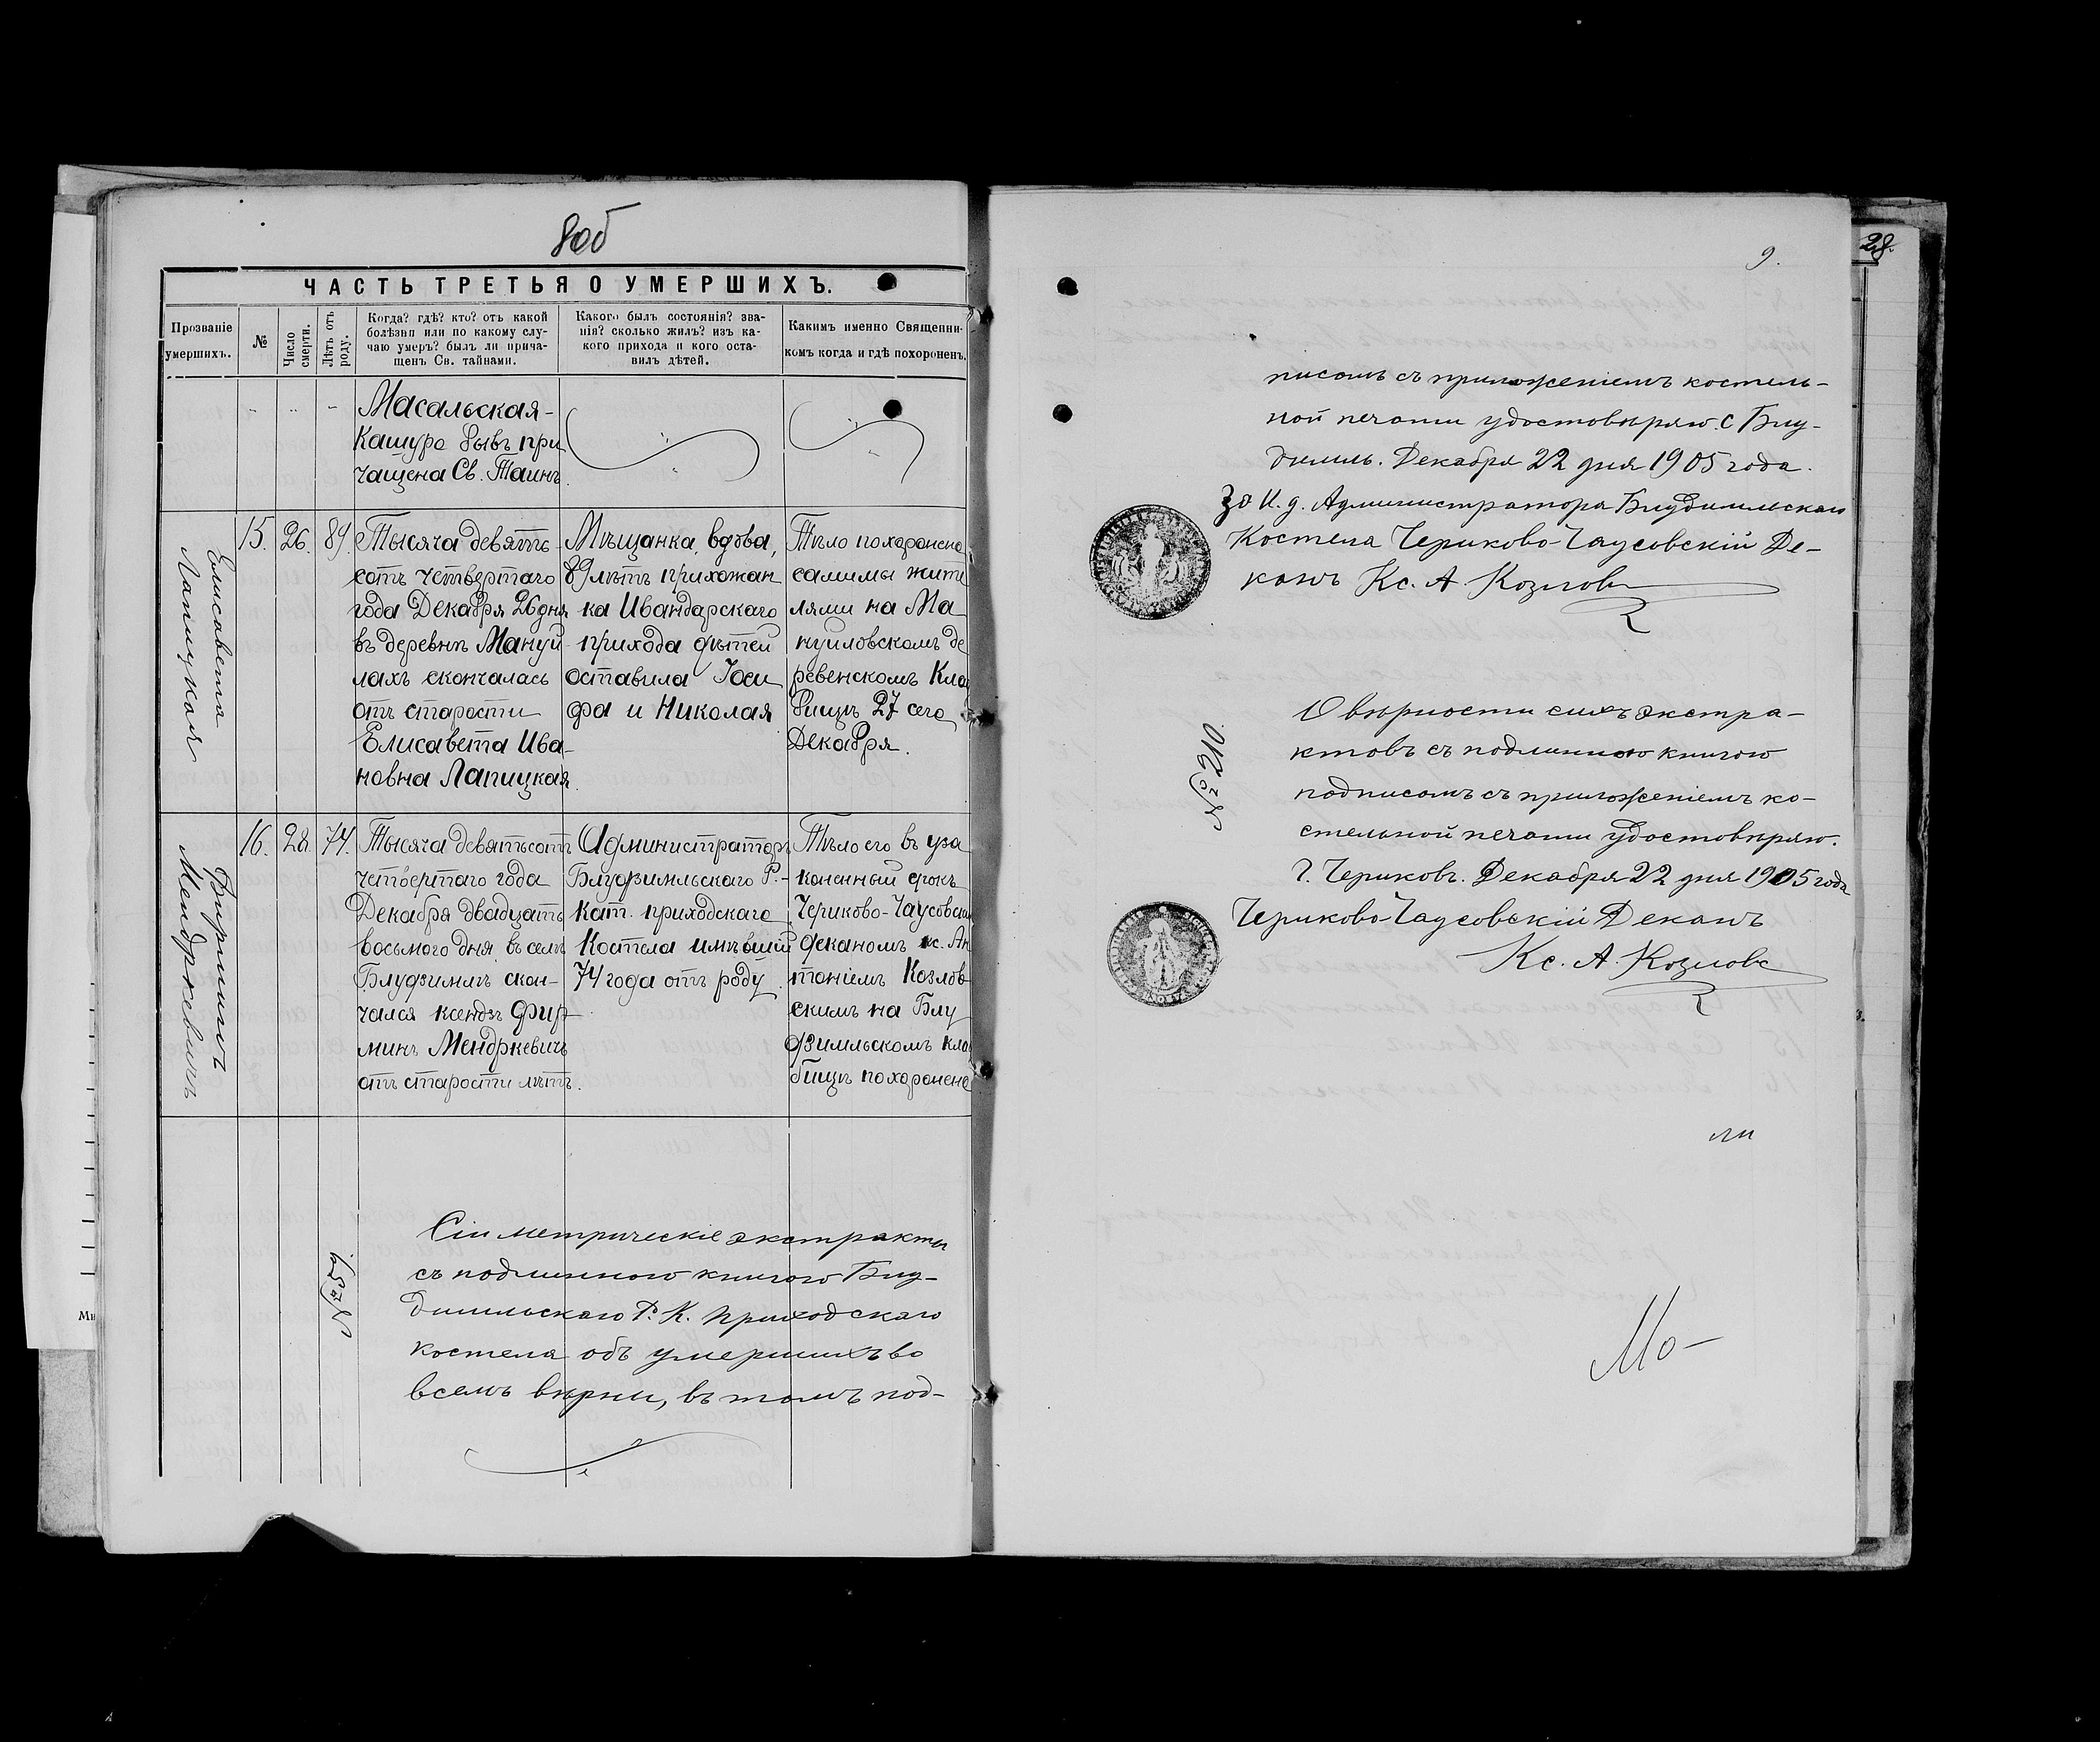 8об
ЧАСТЬ ТРЕТЬЯ О УМЕРШИХЪ.
Прозваніе умершихъ.
№
Число смерти.
Лѣтъ отъ роду.
Когда? гдѣ? кто? отъ какой
болѣзни или по какому слу-
чаю умеръ? былъ ли прича-
щенъ Св. тайнами.
Какого былъ состоянія? зва-
нія? сколько жилъ? изъ ка-
кого прихода и кого оста-
вилъ дѣтей.
Какимъ именно Священни-
комъ когда и гдѣ похороненъ.
Масальская-
Кашура бывъ при
чащена Св. Таинъ.
Елисавета
Лапицкая
15.
26.
89.
Тысяча девять
сотъ четвертаго
года Декабря 26 дня
въ деревнѣ Мануй
лахъ скончалась
отъ старости
Елисавета Ива-
новна Лапицкая.
Мѣщанка, вдова,
89 лѣтъ прихожан
ка Ивандарскаго
прихода дѣтей
оставила Іоси
фа и Николая
Тѣло похоронено
самими жите
лями на Ма
нуиловскомъ де
ревенскомъ Кла
бищѣ 27 сего
Декабря.
Фирминъ
Мендркевичъ
16.
28.
74.
Тысяча девятьсотъ
четвертаго года
Декабря двадцать
восьмого дня въ селѣ
Блудзимлѣ скон-
чался ксендзъ Фир
минъ Мендркевичъ
отъ старости лѣтъ.
Администраторъ
Блудзимльскаго Р.-
кат. приходскаго
Костела имѣвшій
74 года отъ роду.
Тѣло его въ уза
коненный срокъ
Чериково-Чаусовским
деканомъ кс. Ан
тоніемъ Козлов
скимъ на Блу
дзимльскомъ кла
бищѣ похоронено
Сіи метрическіе экстракты
съ подлинною книгою
Р. К. Приходскаго
костела объ умершихъ во
всемъ вѣрны, въ томъ под-
9.
28.
писомъ съ приложеніемъ костель-
ной печати удостовѣряю.
Декабря 22 дня 1905 года.
За И. д. Администратора
Костела Чериково-Чаусовскій Де-
канъ Кс. А. Козловс
№ 210.
О вѣрности сихъ экстра-
ктовъ съ подлинною книгою
подписомъ съ приложеніемъ ко-
стельной печати удостовѣряю.
Г. Чериковъ. Декабря 22 дня 1905 года
Чериково-Чаусовскій Деканъ
Кс. А. Козловс
Мо-